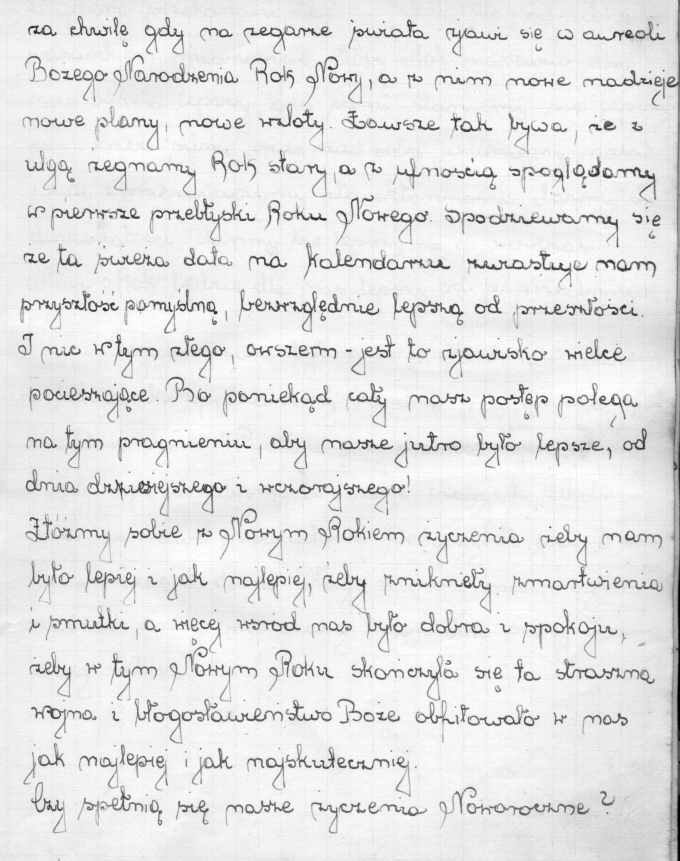 za chwilę gdy na zegarze świata zjawi się w aureoli
Bożego Narodzenia Rok Nowy, a z nim nowe nadzieje
nowe plany, nowe wzloty. Zawsze tak bywa, że z
ulgą żegnamy Rok stary, a z ufnością spoglądamy
w pierwsze przebłyski Roku Nowego. Spodziewamy się
że ta świeża data na kalendarzu zwiastuje nam
przyszłość pomyślną, bezwzględnie lepszą od przeszłości.
I nic w tym złego, owszem - jest to zjawisko wielce
pocieszające. Bo poniekąd cały nasz postęp polega
na tym pragnieniu, aby nasze jutro było lepsze, od
dnia dzisiejszego i wczorajszego!
Złóżmy sobie z Nowym Rokiem życzenia żeby nam
było lepiej i jak najlepiej, żeby zniknęły zmartwienia
i smutki, a więcej wśród nas było dobra i spokoju,
żeby w tym Nowym Roku skończyła się ta straszna
wojna i błogosławieństwo Boże obfitowało w nas
jak najlepiej i jak najskuteczniej.
Czy spełnią się nasze życzenia Noworoczne?